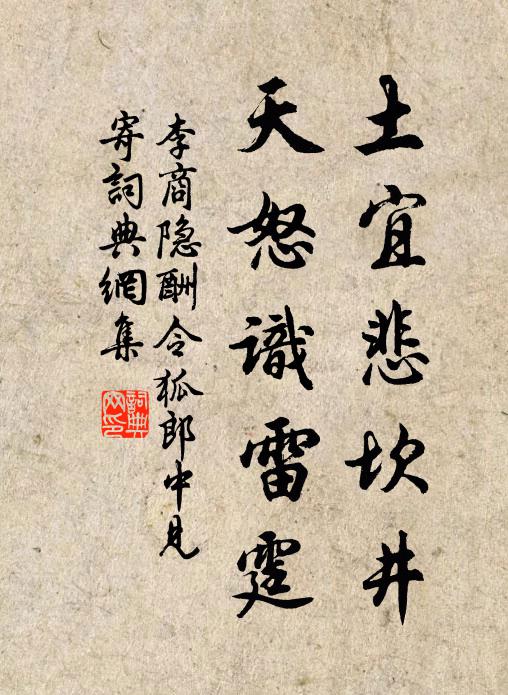 土宜悲坎井
天怒識雷霆
李商隐酬令狐郎中見
寄詞典網集
詞典网印